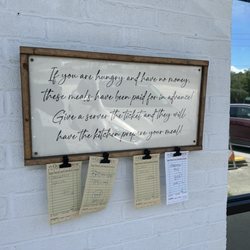 If you are hungry and have no money,
these meals have been paid for in advance!
Give a server the ticket and they will
have the kitchen prepare your meal!